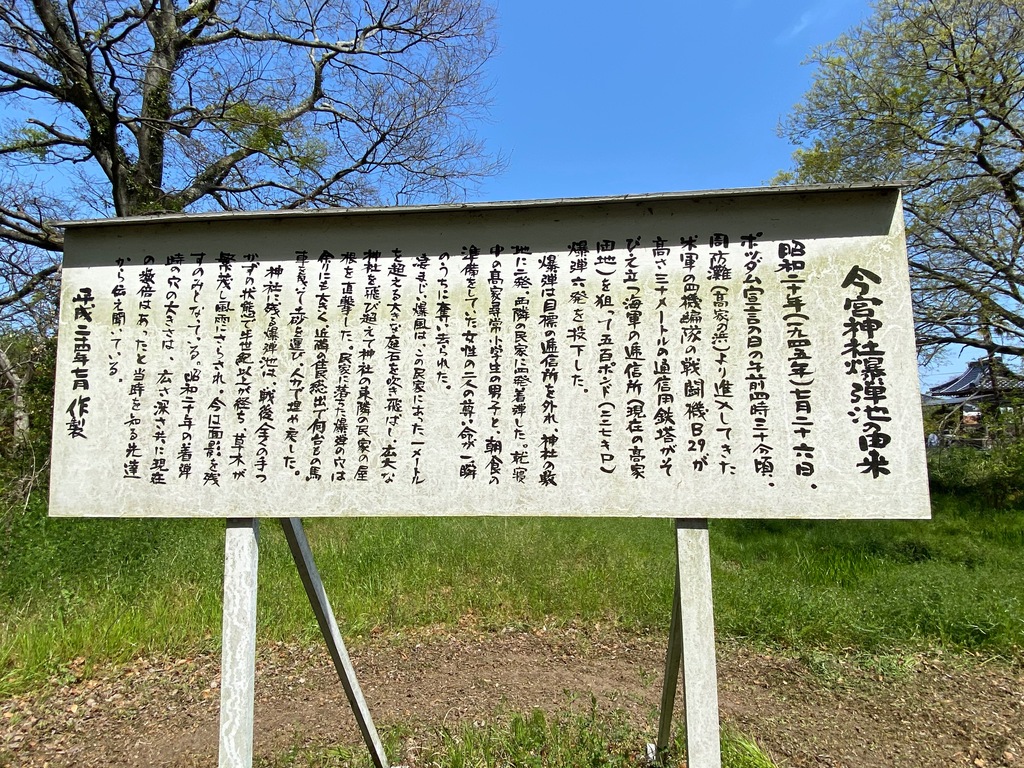 今宮神社爆弾池の由来
昭和二十年(一九四五年)七月二十六日、
ポツダム宣言の日の午前四時三十分頃、
周防灘(高家の浜)より進入してきた
米軍の四機編隊の戦闘機B29が
高さ三十メートルの通信用鉄塔がそ
びえ立つ海軍の通信所(現在の高家
団地)を狙って五百ポンド(二二七キロ)
爆弾六発を投下した。
爆弾は目標の通信所を外れ、神社の敷
地に二発、西隣の民家に四発着弾した。就寝
中の高家尋常小学生の男子と、朝食の
準備をしていた女性の二人の尊い命が一瞬
のうちに奪い去られた。
凄まじい爆風は、この民家にあった一メートル
を超える大きな庭石を吹き飛ばし、広大な
神社を飛び越えて神社の東隣の民家の屋
根を直撃した。民家に落ちた爆弾の穴は
余りにも大きく近隣の住民総出で何台もの馬
車を使って土砂を運び、人力で埋め戻した。
神社に残る爆弾池は、戦後全くの手つ
かずの状態で半世紀以上が経ち、草木が
繁茂し風雨にさらされ、今は面影を残
すのみとなっている。昭和二十年の着弾
時の穴の大きさは、広さ深さ共に現在
の数倍はあったと当時を知る先達
から伝え聞いている。
平成二十四年七月 作製